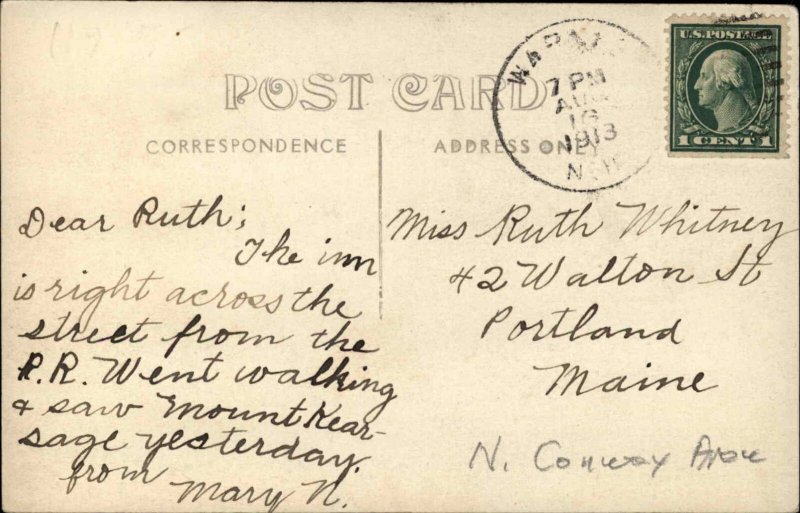 POST CARD
CORRESPONDENCE
ADDRESS ONLY
7 PM
AUG
16
1913
N.H.
U.S. POSTAGE
1 CENT 1
Dear Ruth;
The inn
is right across the
street from the
R.R. Went walking
& saw Mount Kear-
sage yesterday.
from
Mary N.
Miss Ruth Whitney
42 Walton St
Portland
Maine
N. Conway Area